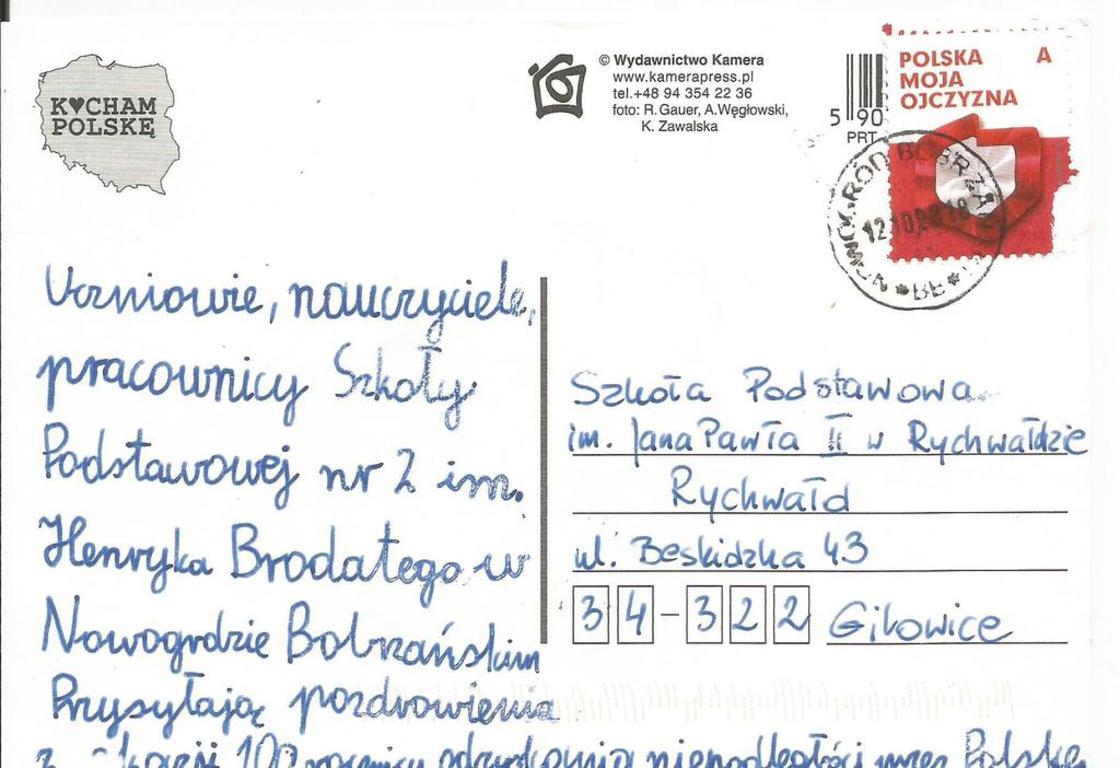 K♥CHAM
POLSKĘ
© Wydawnictwo Kamera
www.kamerapress.pl
tel.+48 94 354 22 36
foto: R.Gauer, A.Węgłowski,
K. Zawalska
5 90
PRT
POLSKA A
MOJA
OJCZYZNA
12.10.2018
Uczniowie, nauczyciele,
pracownicy Szkoły
Podstawowej nr 2 im.
Henryka Brodatego w
Nowogrdzie Bobrzańskim
Przysyłają pozdrowienia
z okazji 100 rocznicy odzyskania niepodległości przez Polskę
Szkoła Podstawowa
im. Jana Pawła II w Rychwałdzie
Rychwałd
ul. Beskidzka 43
34-322 Gilowice